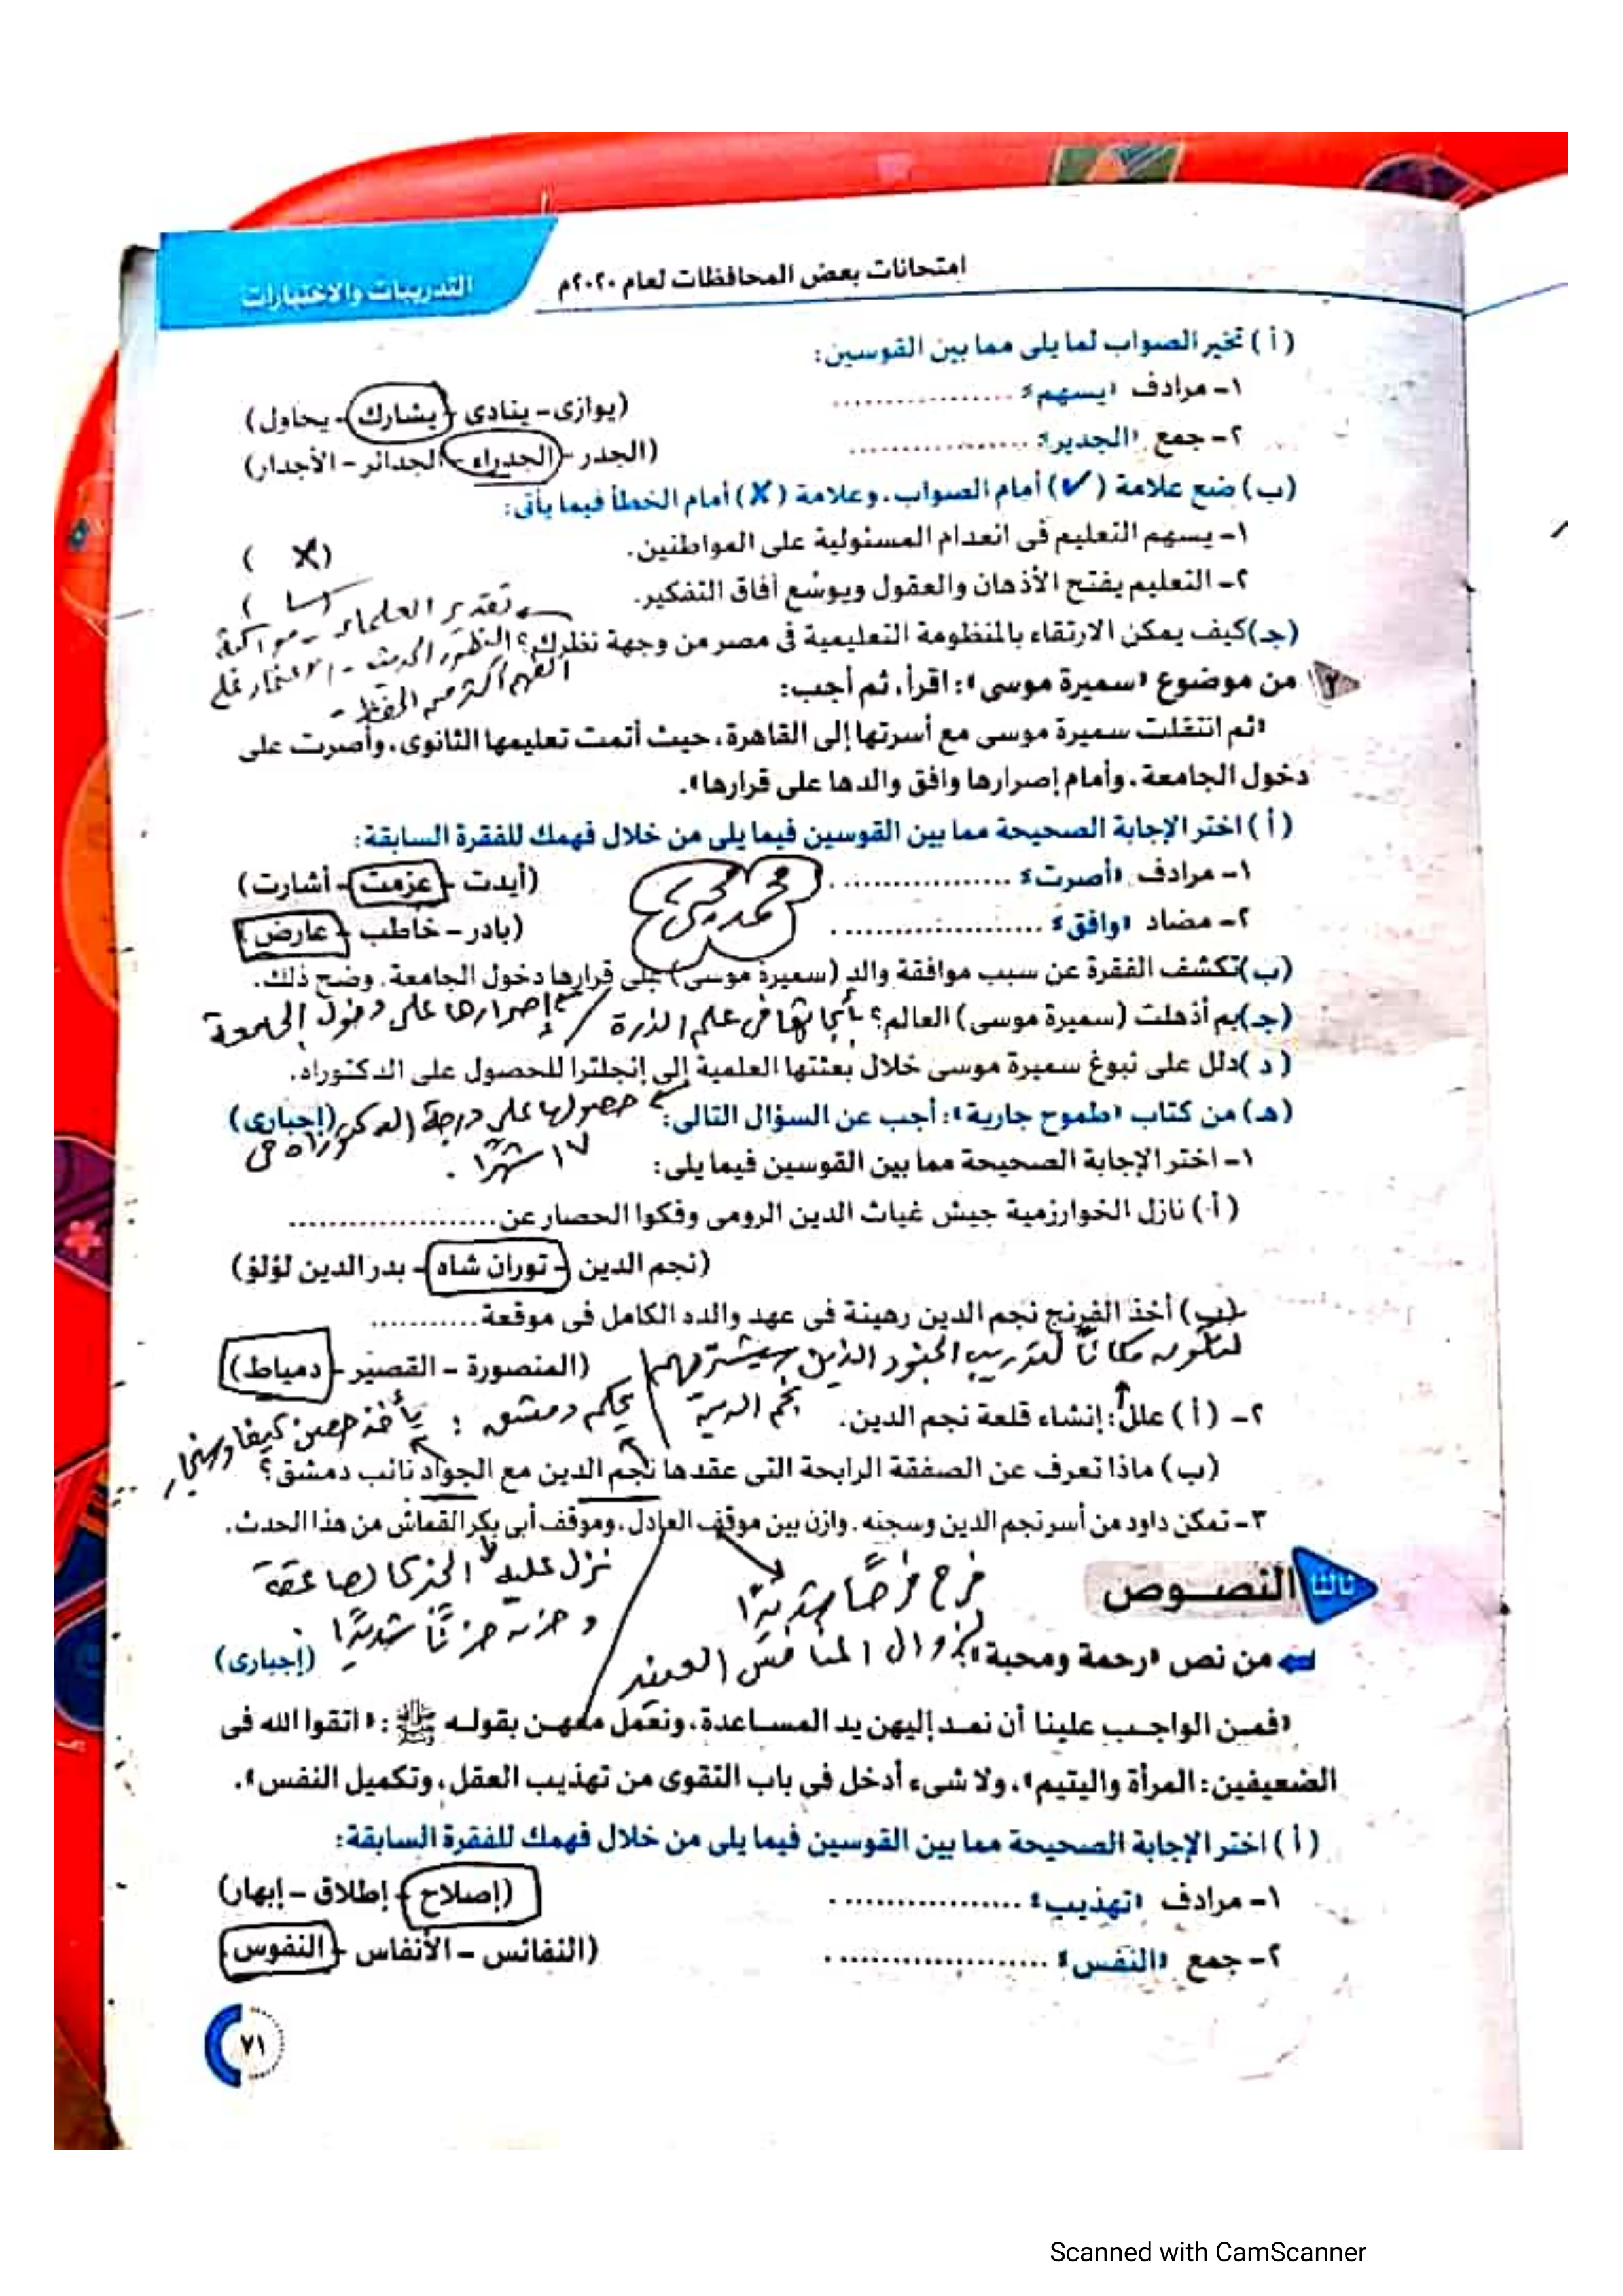 امتحانات بعض المحافظات لعام ٢٠٢٠م
التدريبات والاختبارات
(أ) تخير الصواب لما يلى مما بين القوسين:
١- مرادف «يسهم» .................. (يوازى - ينادى - يشارك - يحاول)
٢- جمع «الجدير» .................. (الجدر - الجدراء - الجدائر - الأجدار)
(ب) ضع علامة (✓) أمام الصواب، وعلامة (✗) أمام الخطأ فيما يأتى:
١- يسهم التعليم فى انعدام المسئولية على المواطنين. (X)
٢- التعليم يفتح الأذهان والعقول ويوسع آفاق التفكير. (✓)
تقدير العلماء - مواكبة
(جـ) كيف يمكن الارتقاء بالمنظومة التعليمية فى مصر من وجهة نظرك؟
التطور الحديث - الاعتماد على
الفهم أكثر من الحفظ -
٢ من موضوع «سميرة موسى»: اقرأ، ثم أجب:
«ثم انتقلت سميرة موسى مع أسرتها إلى القاهرة، حيث أتمت تعليمها الثانوى، وأصرت على
دخول الجامعة، وأمام إصرارها وافق والدها على قرارها».
(أ) اختر الإجابة الصحيحة مما بين القوسين فيما يلى من خلال فهمك للفقرة السابقة:
١- مرادف «أصرت» .................. (أيدت - عزمت - أشارت)
محمد يحيى
٢- مضاد «وافق» .................. (بادر - خاطب - عارض)
(ب) تكشف الفقرة عن سبب موافقة والد (سميرة موسى) على قرارها دخول الجامعة. وضح ذلك.
إصرارها على دخول الجامعة
(جـ) بم أذهلت (سميرة موسى) العالم؟ بأبحاثها فى علم الذرة
(د) دلل على نبوغ سميرة موسى خلال بعثتها العلمية إلى إنجلترا للحصول على الدكتوراه.
حصولها على درجة الدكتوراه فى
١٧ شهرًا.
(هـ) من كتاب «طموح جارية»: أجب عن السؤال التالى: (إجبارى)
١- اختر الإجابة الصحيحة مما بين القوسين فيما يلى:
(أ) نازل الخوارزمية جيش غياث الدين الرومى وفكوا الحصار عن ..................
(نجم الدين - توران شاه - بدر الدين لؤلؤ)
(ب) أخذ الفرنج نجم الدين رهينة فى عهد والده الكامل فى موقعة ............
(المنصورة - القصير - دمياط)
لتكون مكانًا لتدريب الجنود الذين سيشتريهم
نجم الدين
٢- (أ) علل: إنشاء قلعة نجم الدين.
يحكم دمشق : يأخذ حصن كيفا وسنجار
(ب) ماذا تعرف عن الصفقة الرابحة التى عقدها نجم الدين مع الجواد نائب دمشق؟
٣- تمكن داود من أسر نجم الدين وسجنه. وازن بين موقف العادل، وموقف أبى بكر القماش من هذا الحدث.
فرح فرحًا شديدًا
لزوال المنافس العنيد
نزل عليه الخبر كالصاعقة
وحزن حزنًا شديدًا.
ثالثا النصوص
من نص «رحمة ومحبة»: (إجبارى)
«فمن الواجب علينا أن نمد إليهن يد المساعدة، ونعمل معهن بقوله ﷺ: «اتقوا الله فى
الضعيفين: المرأة واليتيم»، ولا شىء أدخل فى باب التقوى من تهذيب العقل، وتكميل النفس».
(أ) اختر الإجابة الصحيحة مما بين القوسين فيما يلى من خلال فهمك للفقرة السابقة:
١- مرادف «تهذيب» .................. (إصلاح - إطلاق - إبهار)
٢- جمع «النفس» .................. (النفائس - الأنفاس - النفوس)
٧١
Scanned with CamScanner